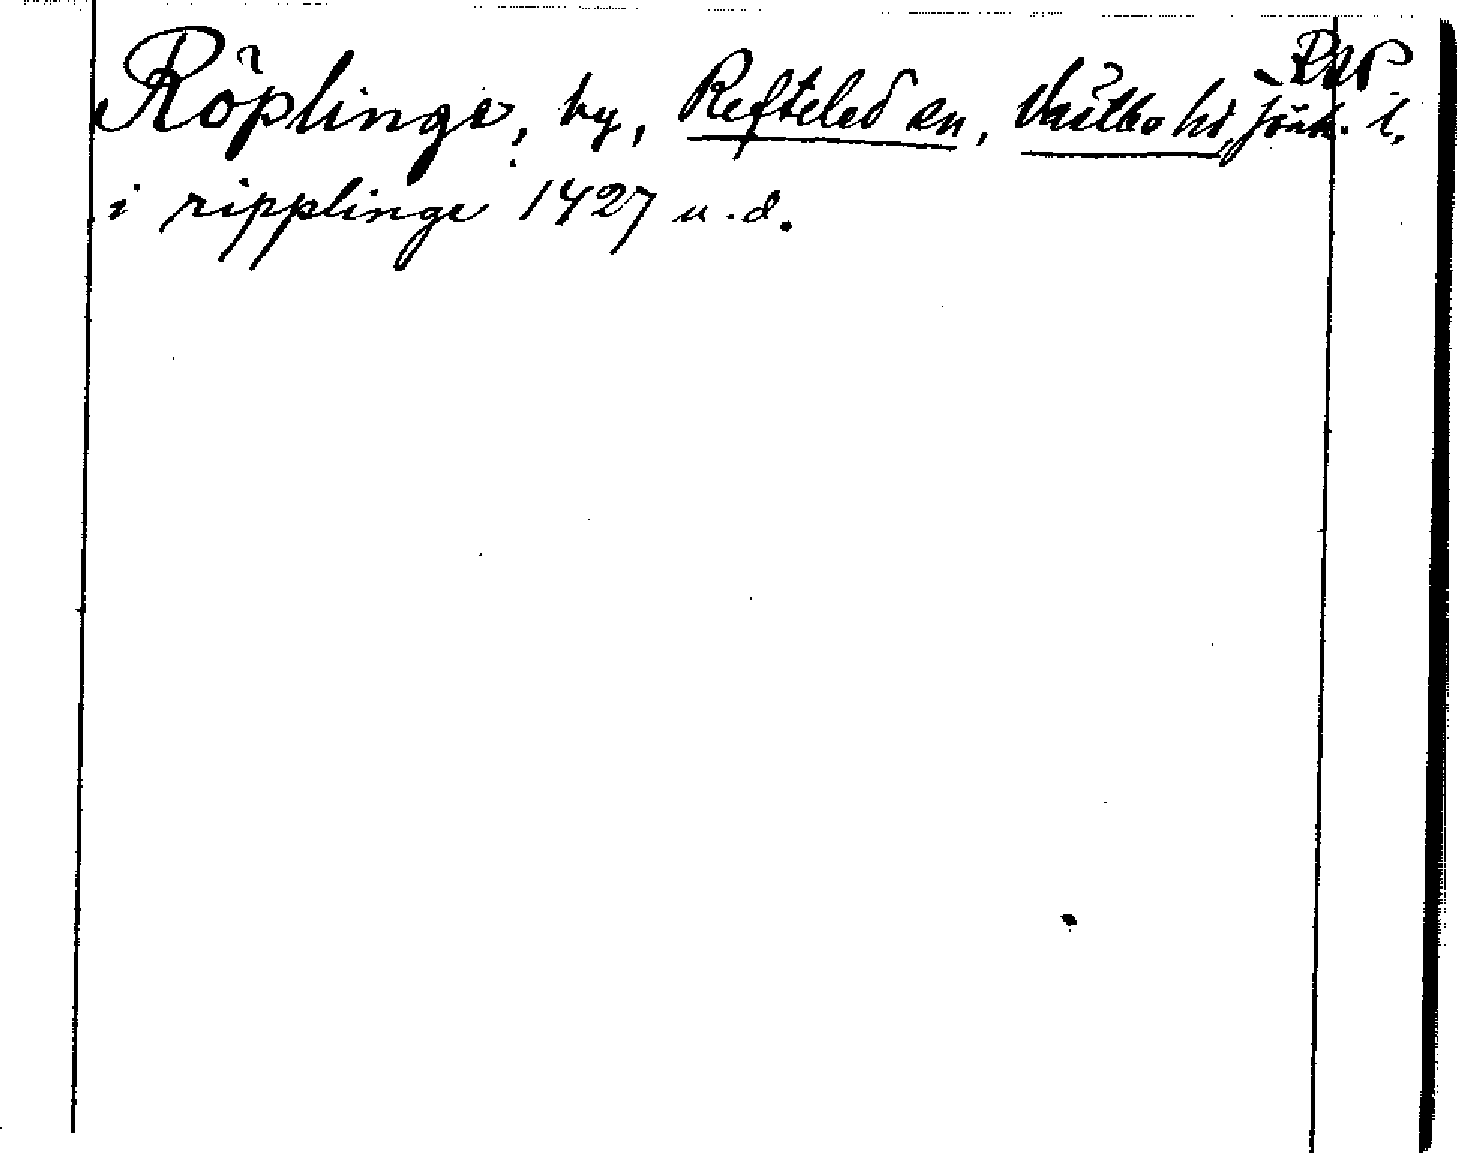 Röplinge, by, Refteled sn, Västbo hd, Jönk. l.
i ripplinge 1427 u.d.